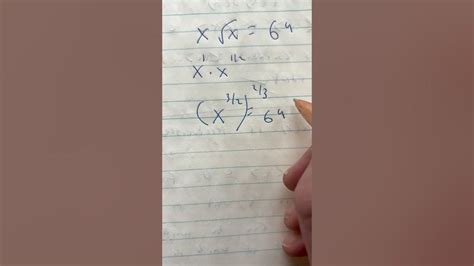 x √x = 64
x¹ · x^(1/2)
(x^(3/2))^(2/3) = 64